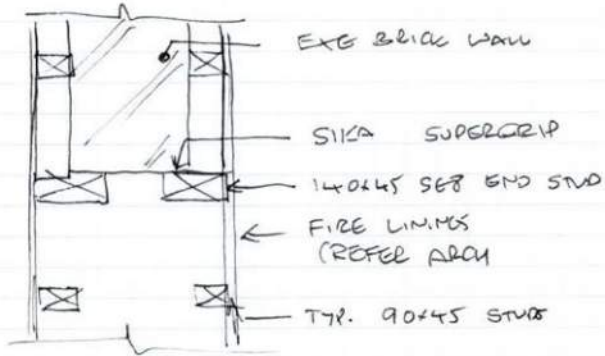 EXG BRICK WALL
SIKA SUPERGRIP
140x45 SG8 END STUD
FIRE LININGS
(REFER ARCH
TYP. 90x45 STUDS